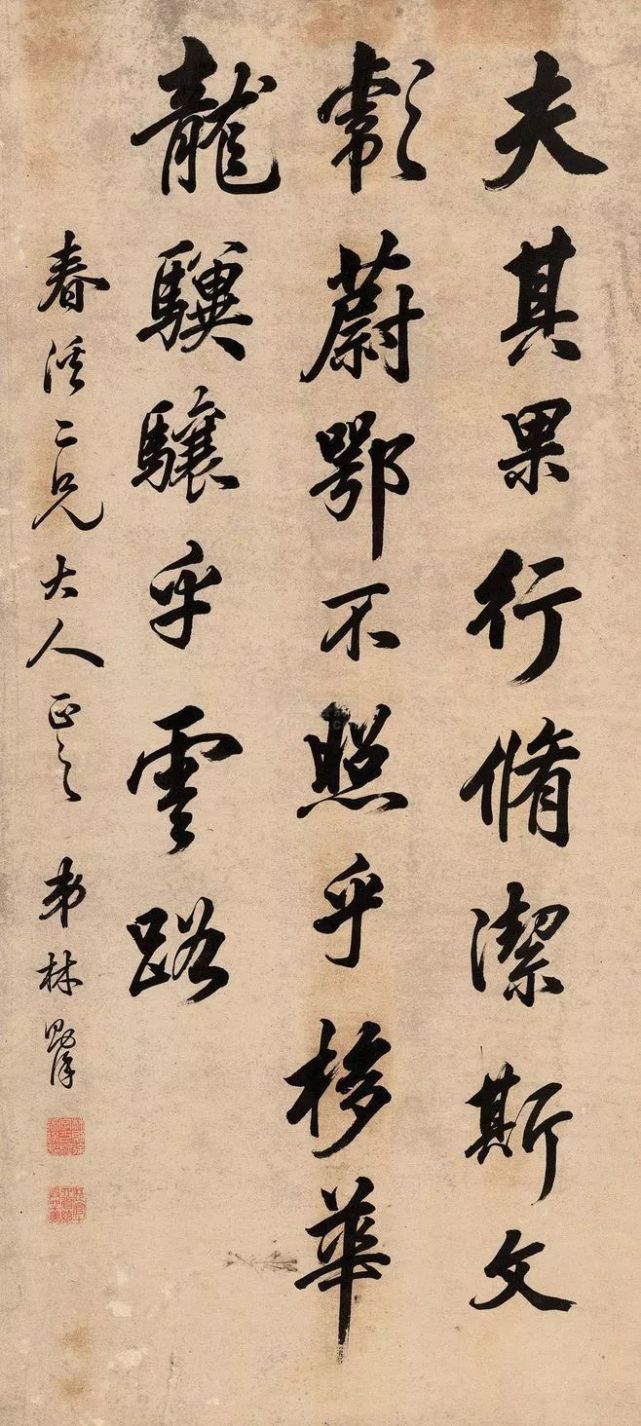 夫其果行脩潔斯文
彪蔚鄂不照乎栘華
龍驥驤乎雲路
春溪二兄大人正之 弟林